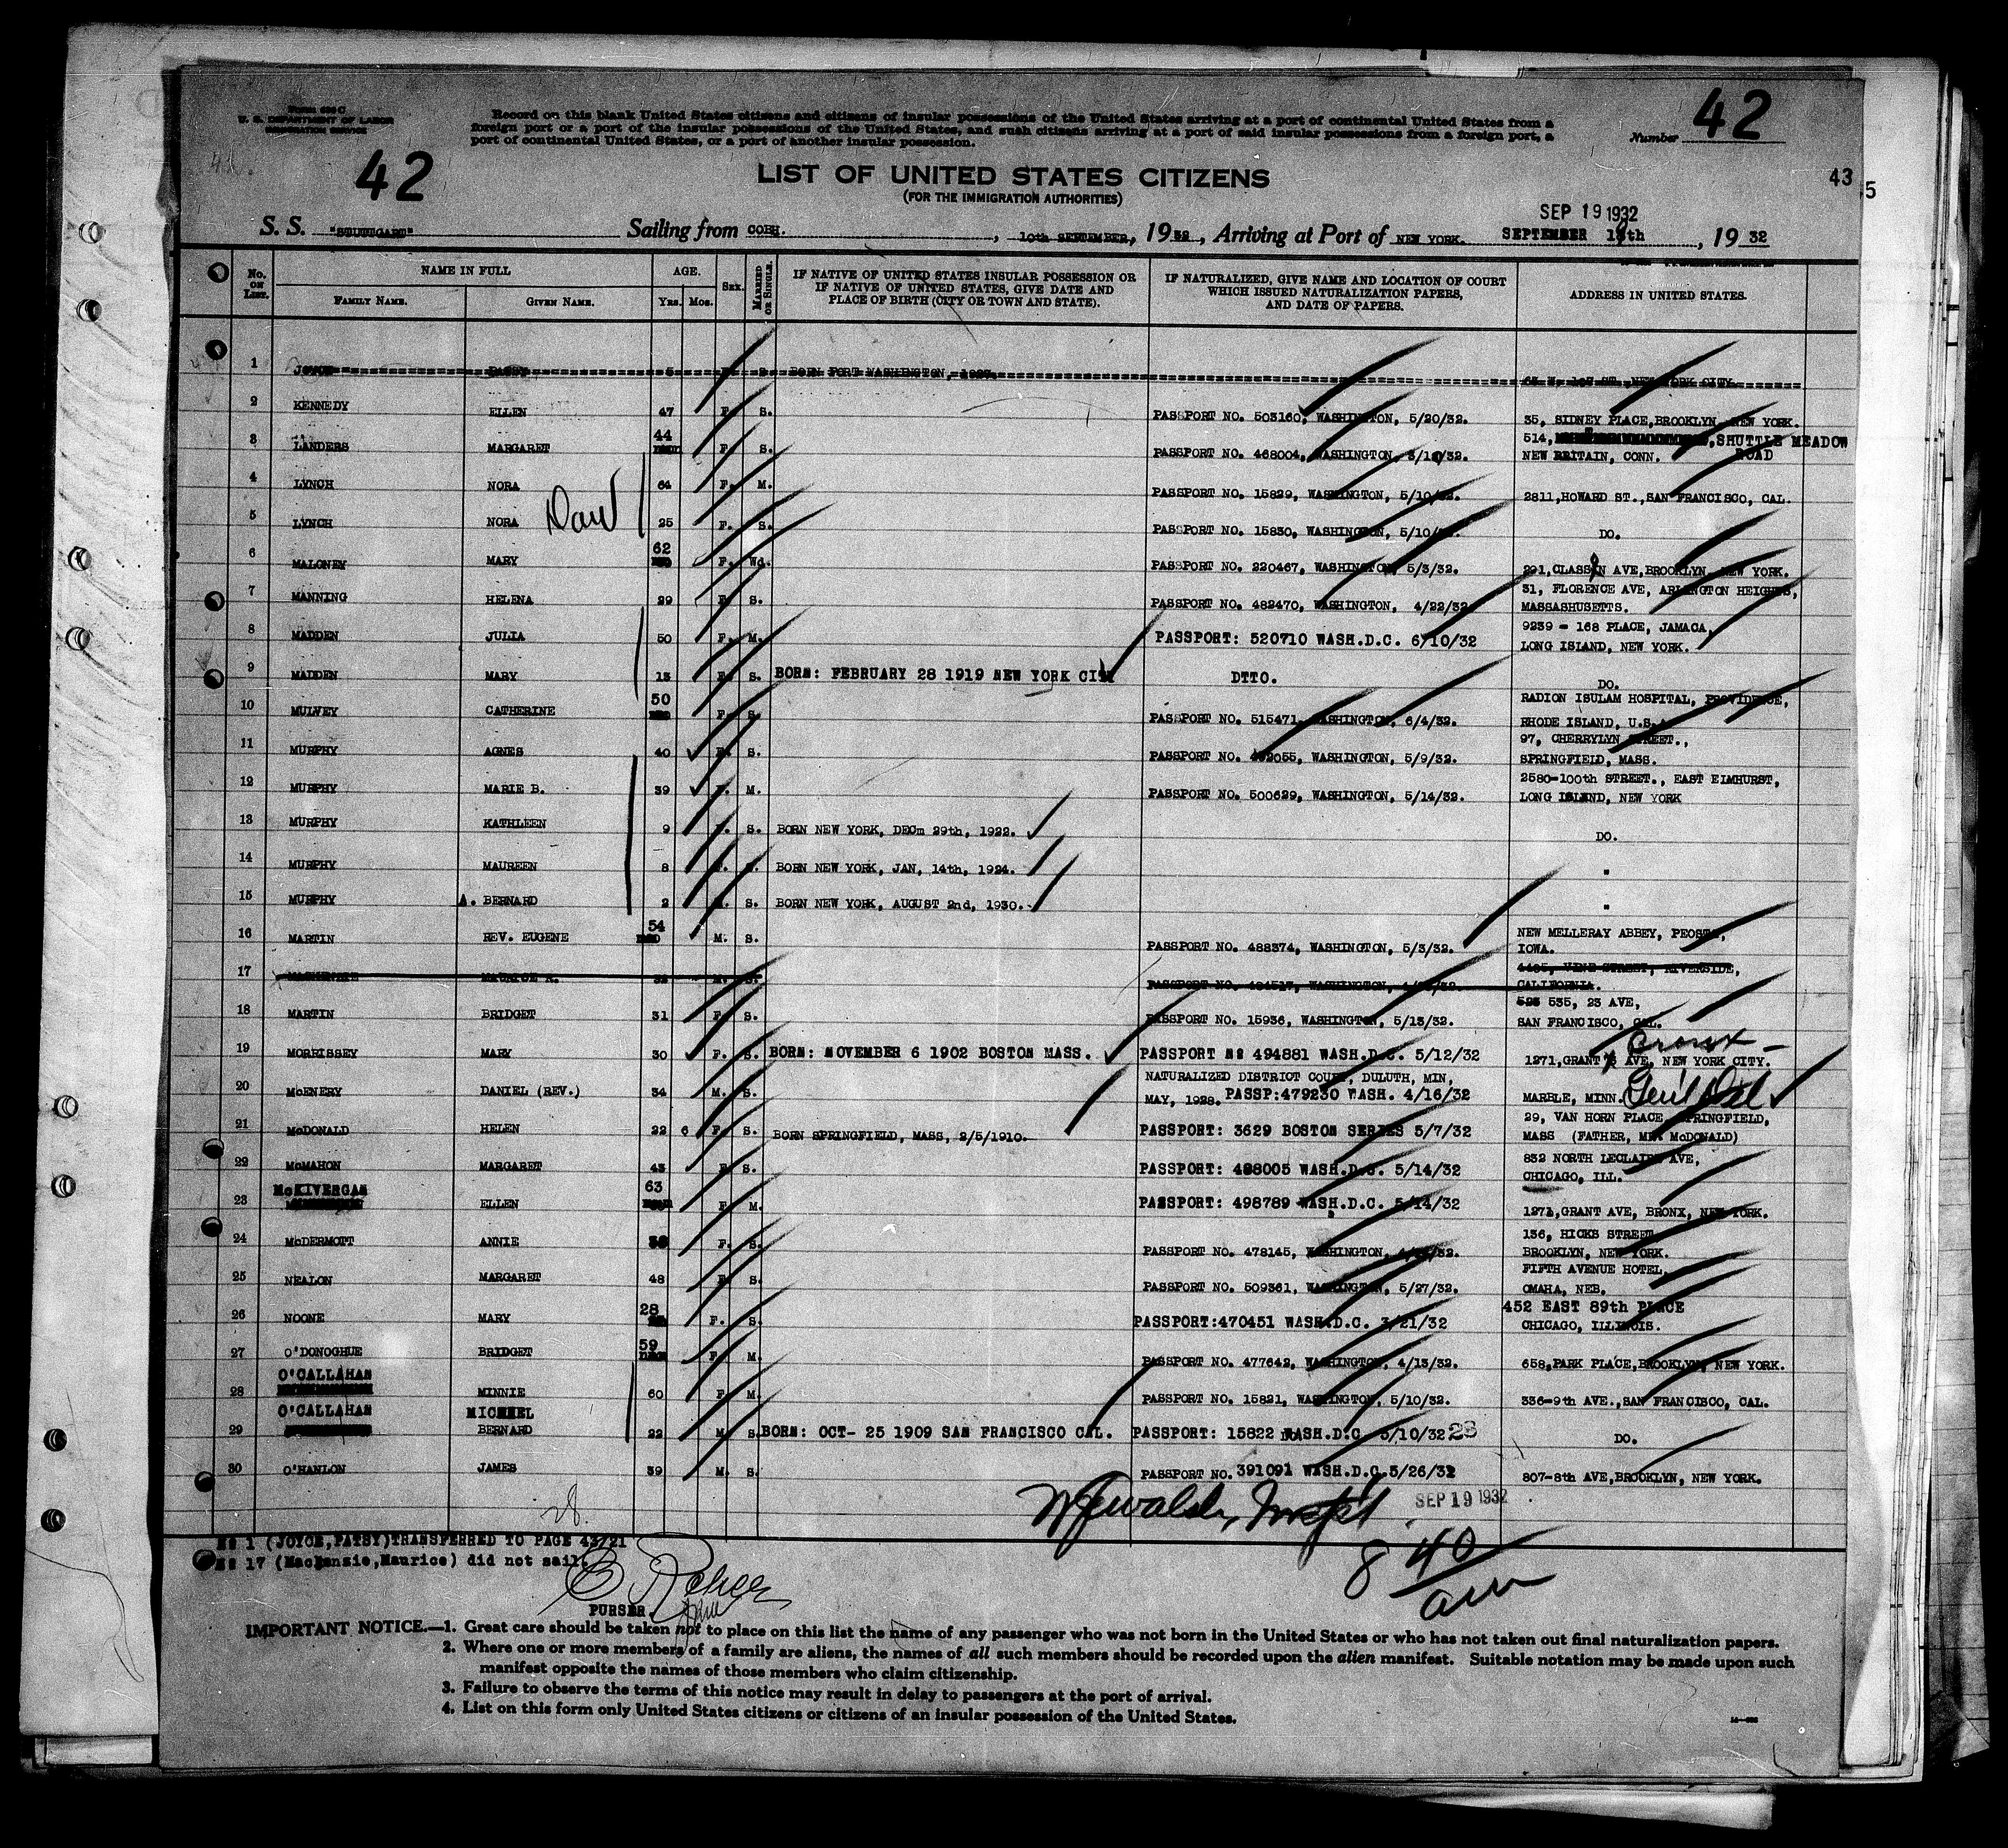 Form 630 C
U. S. DEPARTMENT OF LABOR
IMMIGRATION SERVICE
Record on this blank United States citizens and citizens of insular possessions of the United States arriving at a port of continental United States from a
foreign port or a port of the insular possessions of the United States, and such citizens arriving at a port of said insular possessions from a foreign port, a
port of continental United States, or a port of another insular possession.
Number 42
42
43
5
LIST OF UNITED STATES CITIZENS
(FOR THE IMMIGRATION AUTHORITIES)
SEP 19 1932
S. S. "STUTTGART" Sailing from COBH. , 10th SEPTEMBER, 1932, Arriving at Port of NEW YORK. SEPTEMBER 19th , 1932
No. ON LIST. NAME IN FULL AGE. SEX. MARRIED OR SINGLE. IF NATIVE OF UNITED STATES INSULAR POSSESSION OR IF NATIVE OF UNITED STATES, GIVE DATE AND PLACE OF BIRTH (CITY OR TOWN AND STATE). IF NATURALIZED, GIVE NAME AND LOCATION OF COURT WHICH ISSUED NATURALIZATION PAPERS, AND DATE OF PAPERS. ADDRESS IN UNITED STATES.
FAMILY NAME. GIVEN NAME. Yrs. Mos.
1 JOYCE PATSY 5 S. BORN FORT WASHINGTON, 1927. NEW YORK CITY
2 KENNEDY ELLEN 47 F. S. PASSPORT NO. 503160, WASHINGTON, 5/20/32. 35, SIDNEY PLACE, BROOKLYN, NEW YORK.
3 LANDERS MARGARET 44 F. S. PASSPORT NO. 468004, WASHINGTON, 514, SHUTTLE MEADOW ROAD
NEW BRITAIN, CONN.
4 LYNCH NORA 64 F. M. PASSPORT NO. 15829, WASHINGTON, 5/10/32. 2811, HOWARD ST., SAN FRANCISCO, CAL.
5 LYNCH NORA Dau 25 F. S. PASSPORT NO. 15830, WASHINGTON, 5/10/32. DO.
6 MALONEY MARY 62 F. Wd. PASSPORT NO. 220467, WASHINGTON, 5/3/32. 291, CLASSON AVE, BROOKLYN, NEW YORK.
7 MANNING HELENA 29 F. S. PASSPORT NO. 482470, WASHINGTON, 4/22/32 31, FLORENCE AVE, ARLINGTON HEIGHTS,
MASSASHUSETTS.
8 MADDEN JULIA 50 F. M. PASSPORT: 520710 WASH.D.C. 6/10/32 9239 - 168 PLACE, JAMACA,
LONG ISLAND, NEW YORK.
9 MADDEN MARY 13 F. S. BORN: FEBRUARY 28 1919 NEW YORK CITY DTTO. DO.
10 MULVEY CATHERINE 50 F. S. PASSPORT NO. 515471, WASHINGTON, 6/4/32. RADION ISULAM HOSPITAL, PROVIDENCE,
RHODE ISLAND, U.S.A.
11 MURPHY AGNES 40 F. S. PASSPORT NO. WASHINGTON, 5/9/32. 97, CHERRYLYN STREET.,
SPRINGFIELD, MASS.
12 MURPHY MARIE B. 39 F. M. PASSPORT NO. 500629, WASHINGTON, 5/14/32. 2580-100th STREET., EAST ElMHURST,
LONG ISLAND, NEW YORK
13 MURPHY KATHLEEN 9 F. S. BORN NEW YORK, DECm 29th, 1922. DO.
14 MURPHY MAUREEN 8 F. S. BORN NEW YORK, JAN, 14th, 1924. "
15 MURPHY A. BERNARD 2 M. S. BORN NEW YORK, AUGUST 2nd, 1930. "
16 MARTIN REV. EUGENE 54 M. S. PASSPORT NO. 488374, WASHINGTON, 5/3/32. NEW MELLERAY ABBEY, PEOSTA,
IOWA.
17 MACKENZIE MAURICE R. 32 M. S. PASSPORT NO. 484517, WASHINGTON, 4495, VINE STREET, RIVERSIDE,
CALIFORNIA.
18 MARTIN BRIDGET 31 F. S. PASSPORT NO. 15936, WASHINGTON, 5/13/32. 535, 23 AVE,
SAN FRANCISCO, CAL.
19 MORRISSEY MARY 30 F. S. BORN: NOVEMBER 6 1902 BOSTON MASS. PASSPORT No 494881 WASH.D.C. 5/12/32 1271, GRANT AVE, NEW YORK CITY. Bronx
20 McENERY DANIEL (REV.) 34 M. S. NATURALIZED DISTRICT COURT, DULUTH, MIN,
MAY, 1928. PASSP:479230 WASH. 4/16/32 MARBLE, MINN.
21 McDONALD HELEN 22 6 F. S. BORN SPRINGFIELD, MASS, 2/5/1910. PASSPORT: 3629 BOSTON SERIES 5/7/32 29, VAN HORN PLACE, SPRINGFIELD,
MASS (FATHER, MR. McDONALD)
22 McMAHON MARGARET 43 F. S. PASSPORT: 498005 WASH.D.C. 5/14/32 832 NORTH LECLAIRE AVE,
CHICAGO, ILL.
23 McKIVERGAN ELLEN 63 F. M. PASSPORT: 498789 WASH.D.C. 5/14/32 1271, GRANT AVE, BRONX, NEW YORK.
24 McDERMOTT ANNIE F. S. PASSPORT NO. 478145, WASHINGTON, 136, HICKS STREET
BROOKLYN, NEW YORK.
25 NEALON MARGARET 48 F. S. PASSPORT NO. 509361, WASHINGTON, 5/27/32. FIFTH AVENUE HOTEL,
OMAHA, NEB.
26 NOONE MARY 28 F. S. PASSPORT:470451 WASH.D.C. 3/21/32 452 EAST 89th PLACE
CHICAGO, ILLINOIS.
27 O'DONOGHUE BRIDGET 59 F. M. PASSPORT NO. 477642, WASHINGTON, 4/13/32. 658, PARK PLACE, BROOKLYN, NEW YORK.
28 O'CALLAHAN MINNIE 60 F. M. PASSPORT NO. 15821, WASHINGTON, 5/10/32. 336-9th AVE., SAN FRANCISCO, CAL.
29 O'CALLAHAN MICHAEL BERNARD 22 M. S. BORN: OCT- 25 1909 SAN FRANCISCO CAL. PASSPORT: 15822 WASH.D.C. 5/10/32 28 DO.
30 O'HANLON JAMES 39 M. S. PASSPORT NO. 391091 WASH.D.C. 5/26/32 807-8th AVE, BROOKLYN, NEW YORK.
28.
SEP 19 1932
No 1 (JOYCE,PATSY)TRANSFERRED TO PAGE 43/21
No 17 (MacKenzie,Maurice) did not sail.
8 40
PURSER.
IMPORTANT NOTICE.—1. Great care should be taken not to place on this list the name of any passenger who was not born in the United States or who has not taken out final naturalization papers.
2. Where one or more members of a family are aliens, the names of all such members should be recorded upon the alien manifest. Suitable notation may be made upon such
manifest opposite the names of those members who claim citizenship.
3. Failure to observe the terms of this notice may result in delay to passengers at the port of arrival.
4. List on this form only United States citizens or citizens of an insular possession of the United States.